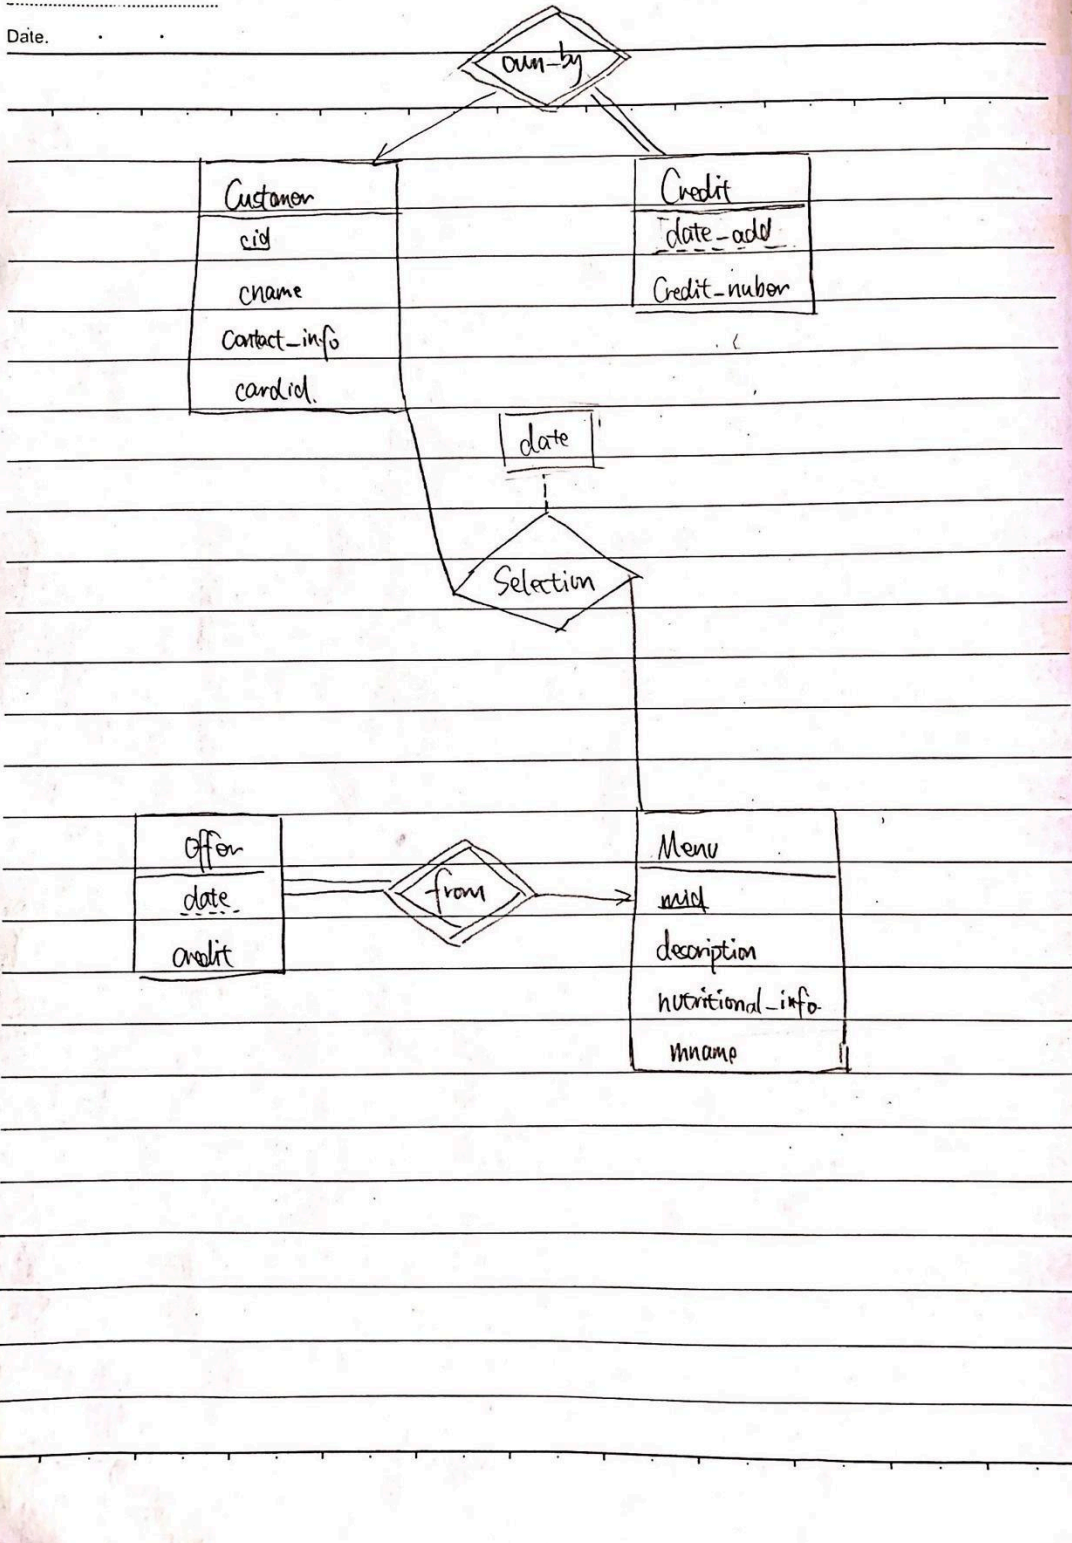 Date.
own_by
Customer
cid
cname
Contact_info
cardid.
Credit
date_add
Credit_nuber
date
Selection
Offer
date
credit
from
Menu
mid
description
nutritional_info.
mname